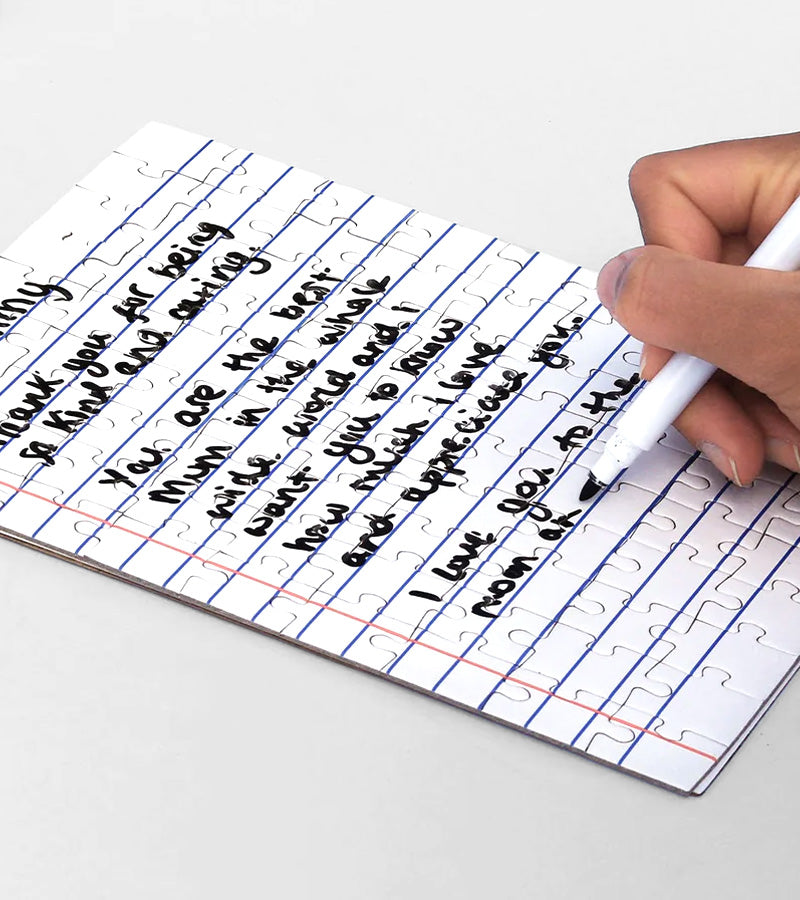 Thank you for being
so kind and caring.
You are the best
Mum in the whole
wide world and i
want you to know
how much i love
and appreciate you.
I love you to the
moon an